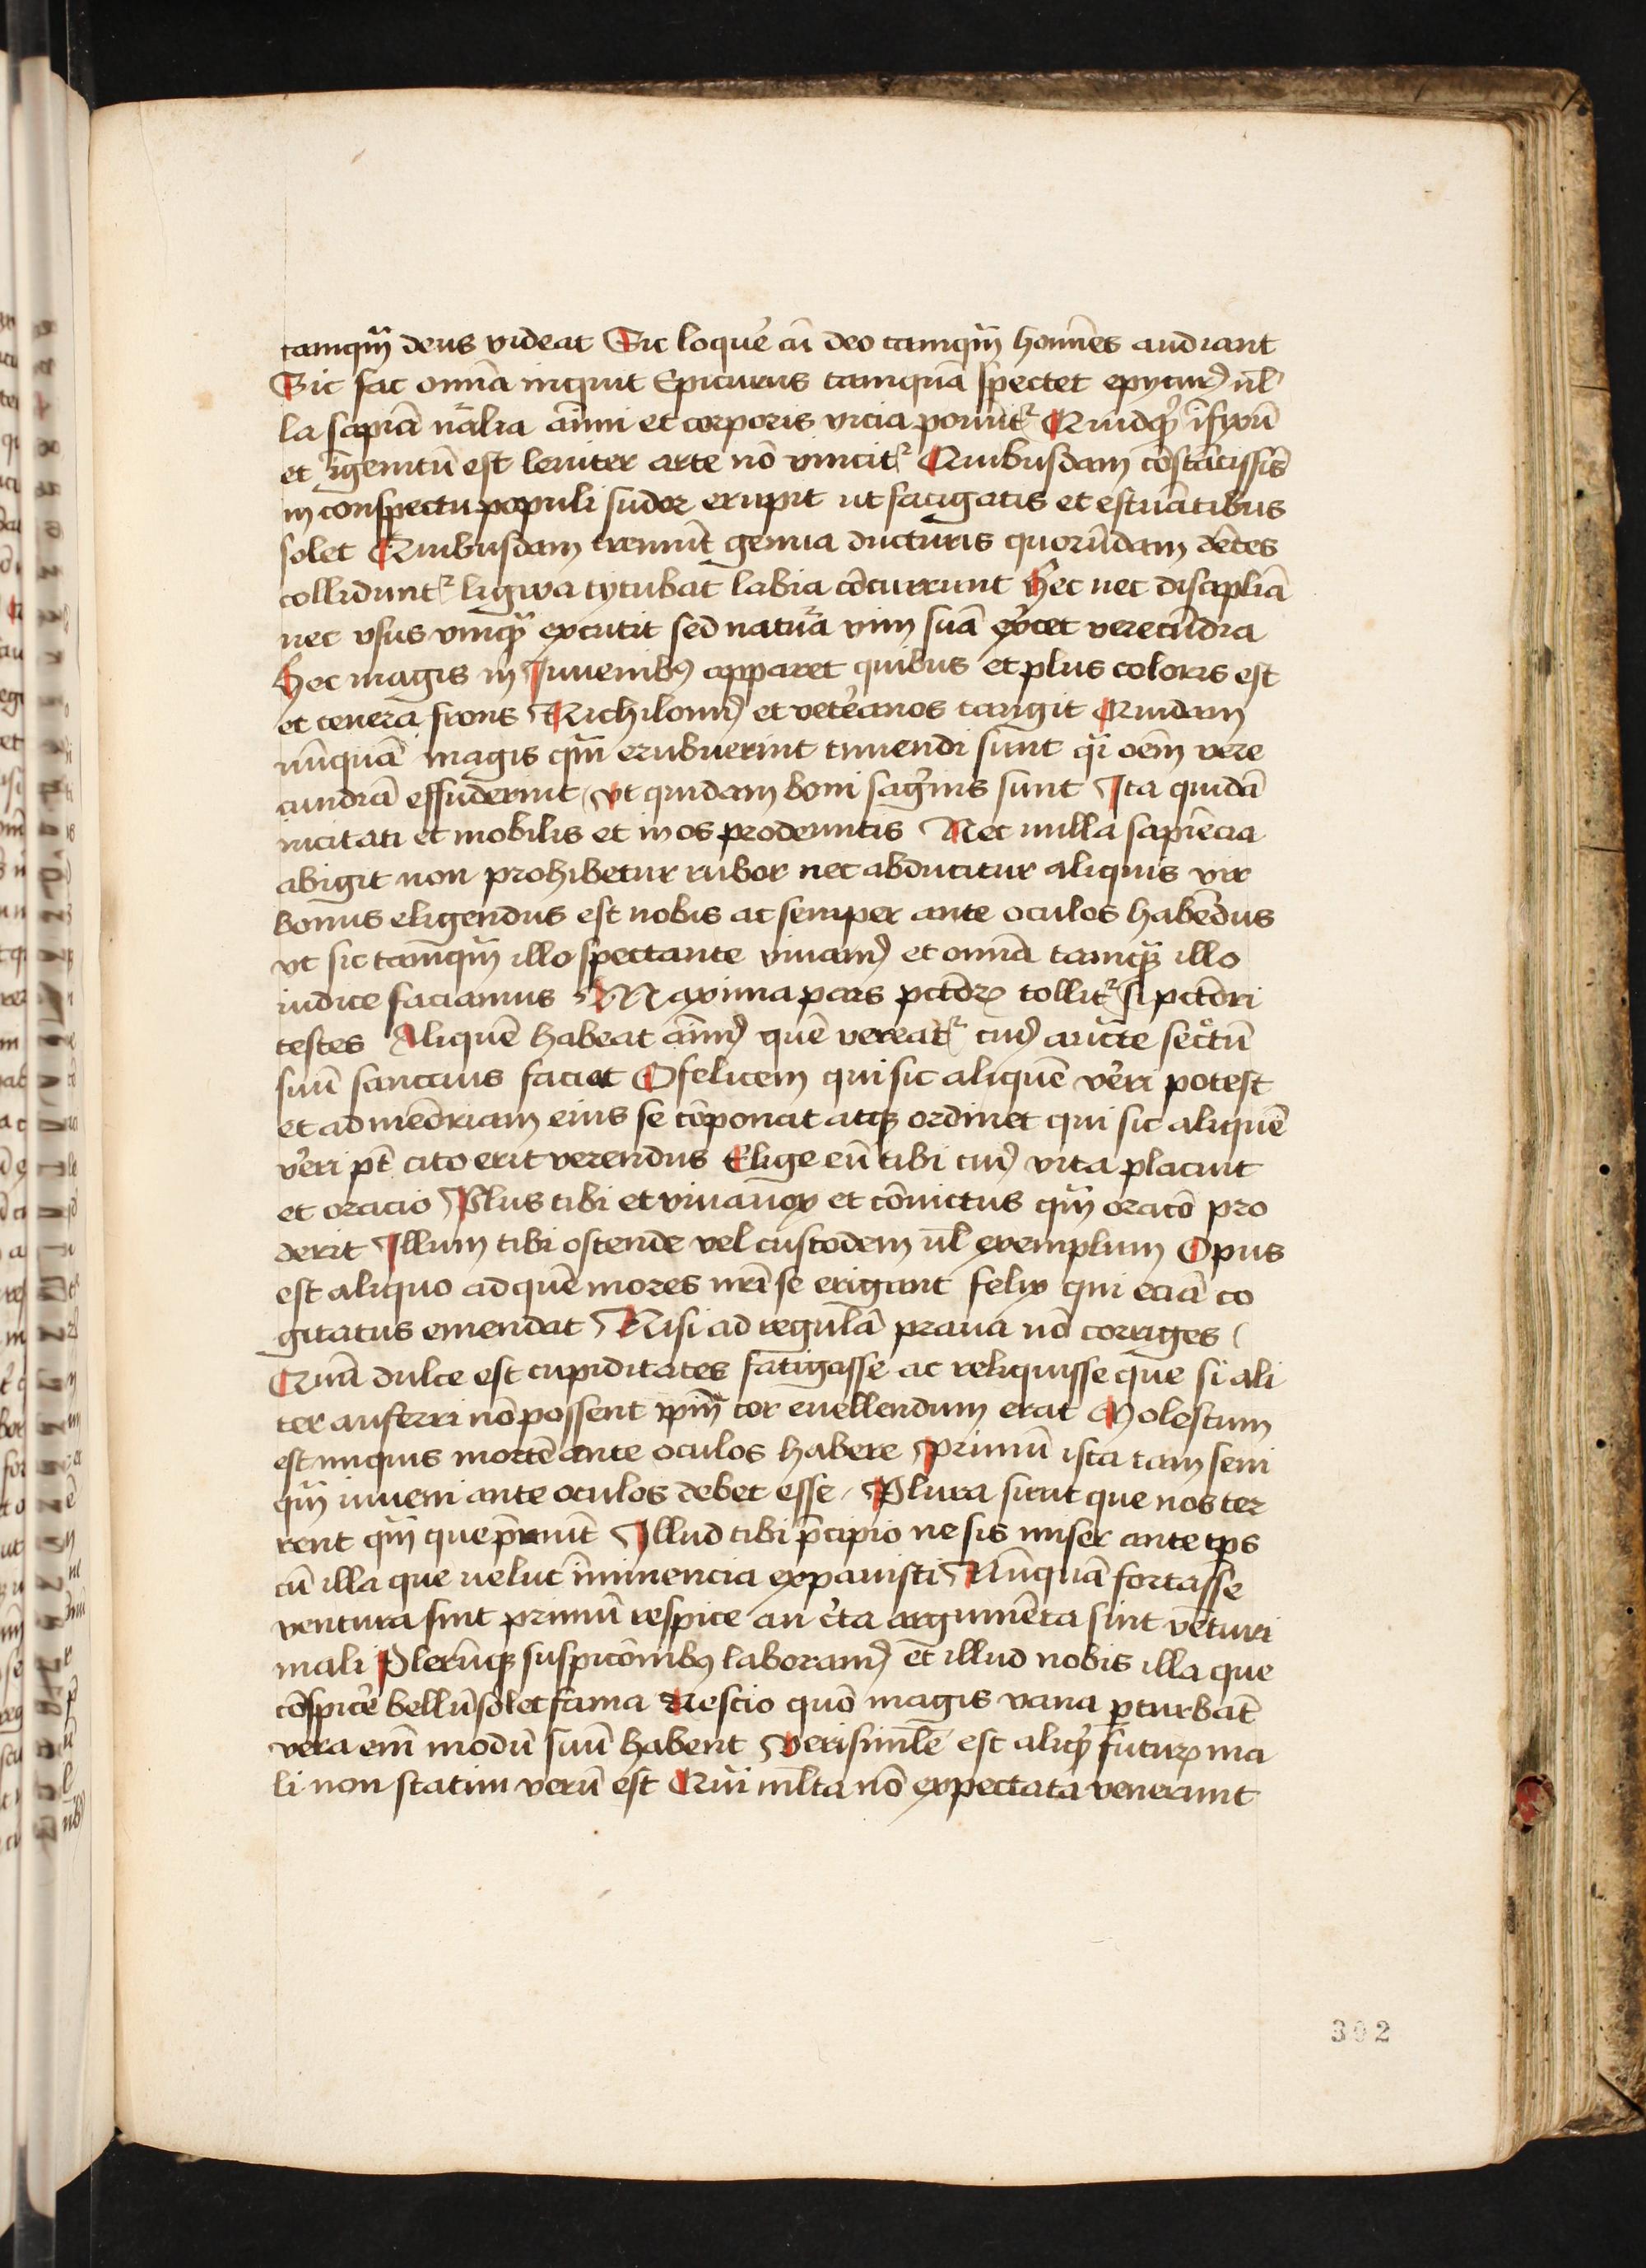 tamqm̄ deus videat Sic loquer̉ cū deo tamqm̄ homīes audiant
Sic fac omīa inquit Epicurus tamquā spectet epycur9 nl̄
la sapiā nālia aīmi et corporis vicia ponūt᷑ Quidq̄d īfixū
et īgenitū est leniter arte nō vincit᷑ Quibusdam cōstācissīs
in conspectu populi sudor erupit ut fatigatis et estuātibus
solet Quibusdam tremūt genua dicturis quorūdam dētes
collidunt᷑ ligwa tytubat labia cōcurrunt Hec nec discipliā
nec vsus vnq̄ excutit sed natura vim suā exērcet verecūdia
Hec magis in Juuenibꝰ apparet quibus et plus coloris est
et tenera frons Nichilomī9 et veter̉anos tangit Quidam
nūquā magis qm̄ erubuerint timendi sunt qͥ oēm vere
cundiā effuderint / vt quidam boni sag̉nis sunt Ita quidā
incitati et mobilis et in os prodeuntis Nec nulla sapiēcia
abigit non prohibetur rubor nec abducitur aliquis vir
bonus eligendus est nobis ac semper ante oculos habēdus
vt sic tamqm̄ illo spectante viuam9 et omīa tamqꝫ illo
iudice faciamus Maxima pars pctōꝝ tollit᷑ si pctōri
testes Aliquē habeat aīm9 quē vereat᷑ cui9 auctē secͤtū
suū sanctius faciat O felicem qui sic aliquē v̉eri potest
et ad meōriam eius se cōponat atqꝫ ordinet qui sic aliquē
v̉eri pt̄ cito erit verendus Elige eū tibi cui9 vita placuit
et oracio Plus tibi et viua vox et cōuictus qm̄ oracō pro
derit Illum tibi ostende vel custodem ul̄ exemplum Opus
est aliquo ad quē mores nr̄i se erigant felix qui eciā co
gitatus emendat Nisi ad regulā praua nō corriges /
Quā dulce est cupiditates fatigasse ac reliquisse que si ali
ter auferri nō possent ipm̄ cor euellendum erat Molestum
est inquis mortē ante oculos habere Primū ista tam seni
qm̄ iuueni ante oculos debet esse / Plura sunt que nos ter
rent qm̄ que p̄munt Illud tibi p̄cipio ne sis miser ante tp̄s
cū illa que uelut īminencia expauisti Nūquā fortasse
ventura sint primū respice an c̉ta argumēta sint vēturi
mali Plerūqꝫ suspicōnibꝰ laboram9 et illud nobis illa que
cōspicēr bellū solet fama Nescio quō magis vana p̱turbāt
vera em̄ modū suū habent Verisimīle est aliq̄d futuꝝ ma
li non statim verū est Quī ml̄ta nō expectata venerunt
302